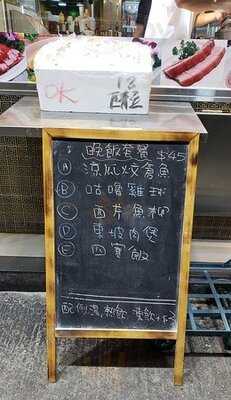 OK
晚飯套餐 $45
A 涼瓜炆倉魚
B 咕嚕雞球
C 西芹魚柳
D 東坡肉煲
E 四寶飯
配例湯,熱飲 凍飲+$3